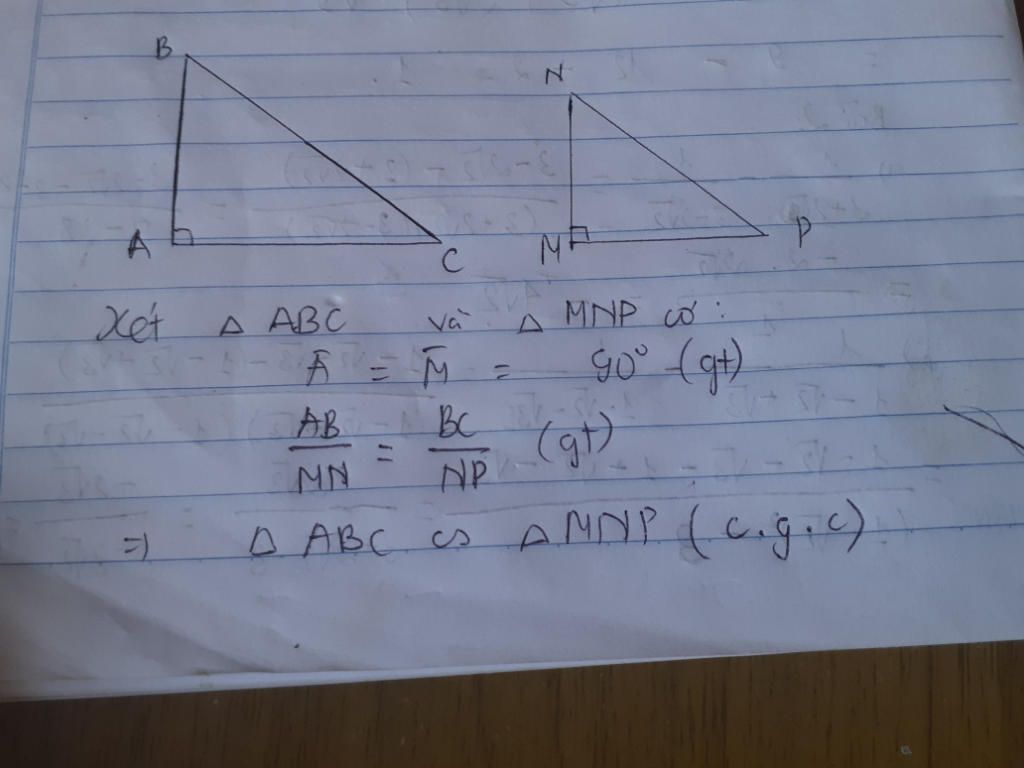 B
N
A
C
M
P
Xét △ ABC và △ MNP có:
Â = M̂ = 90° (gt)
AB/MN = BC/NP (gt)
=> △ ABC ∽ △ MNP (c.g.c)